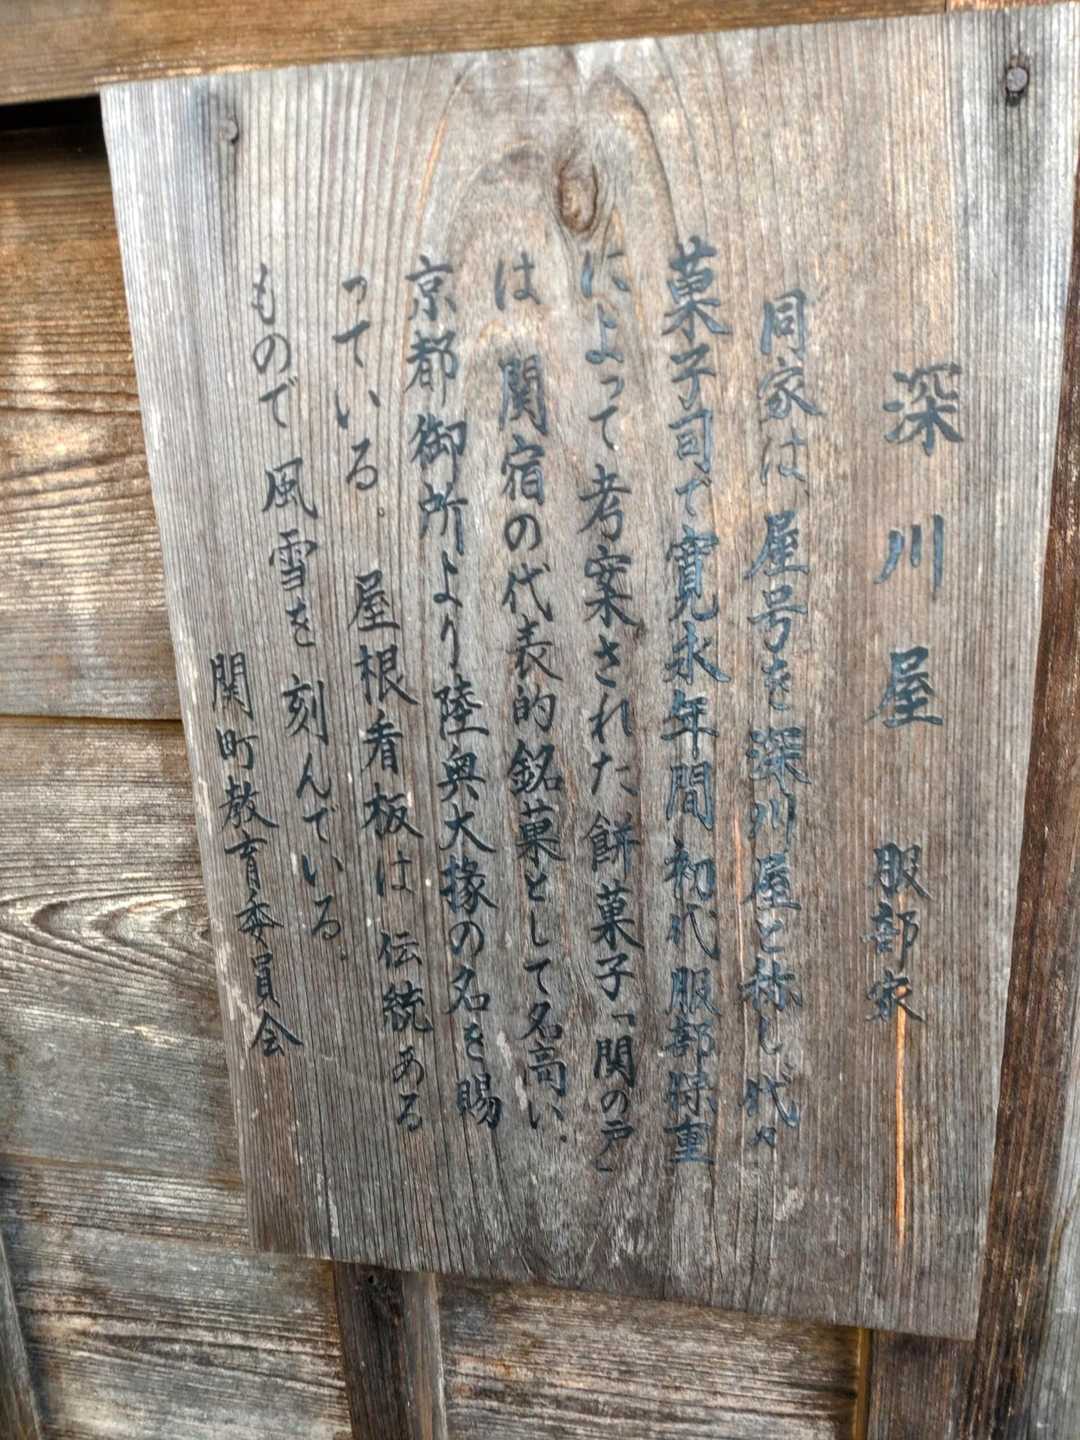 深川屋 服部家
同家は、屋号を深川屋と称し、代々
菓子司で寛永年間初代服部保重
によって考案された餅菓子「関の戸」
は 関宿の代表的銘菓として名高い。
京都御所より陸奥大掾の名を賜
っている。屋根看板は 伝統ある
もので風雪を刻んでいる。
関町教育委員会